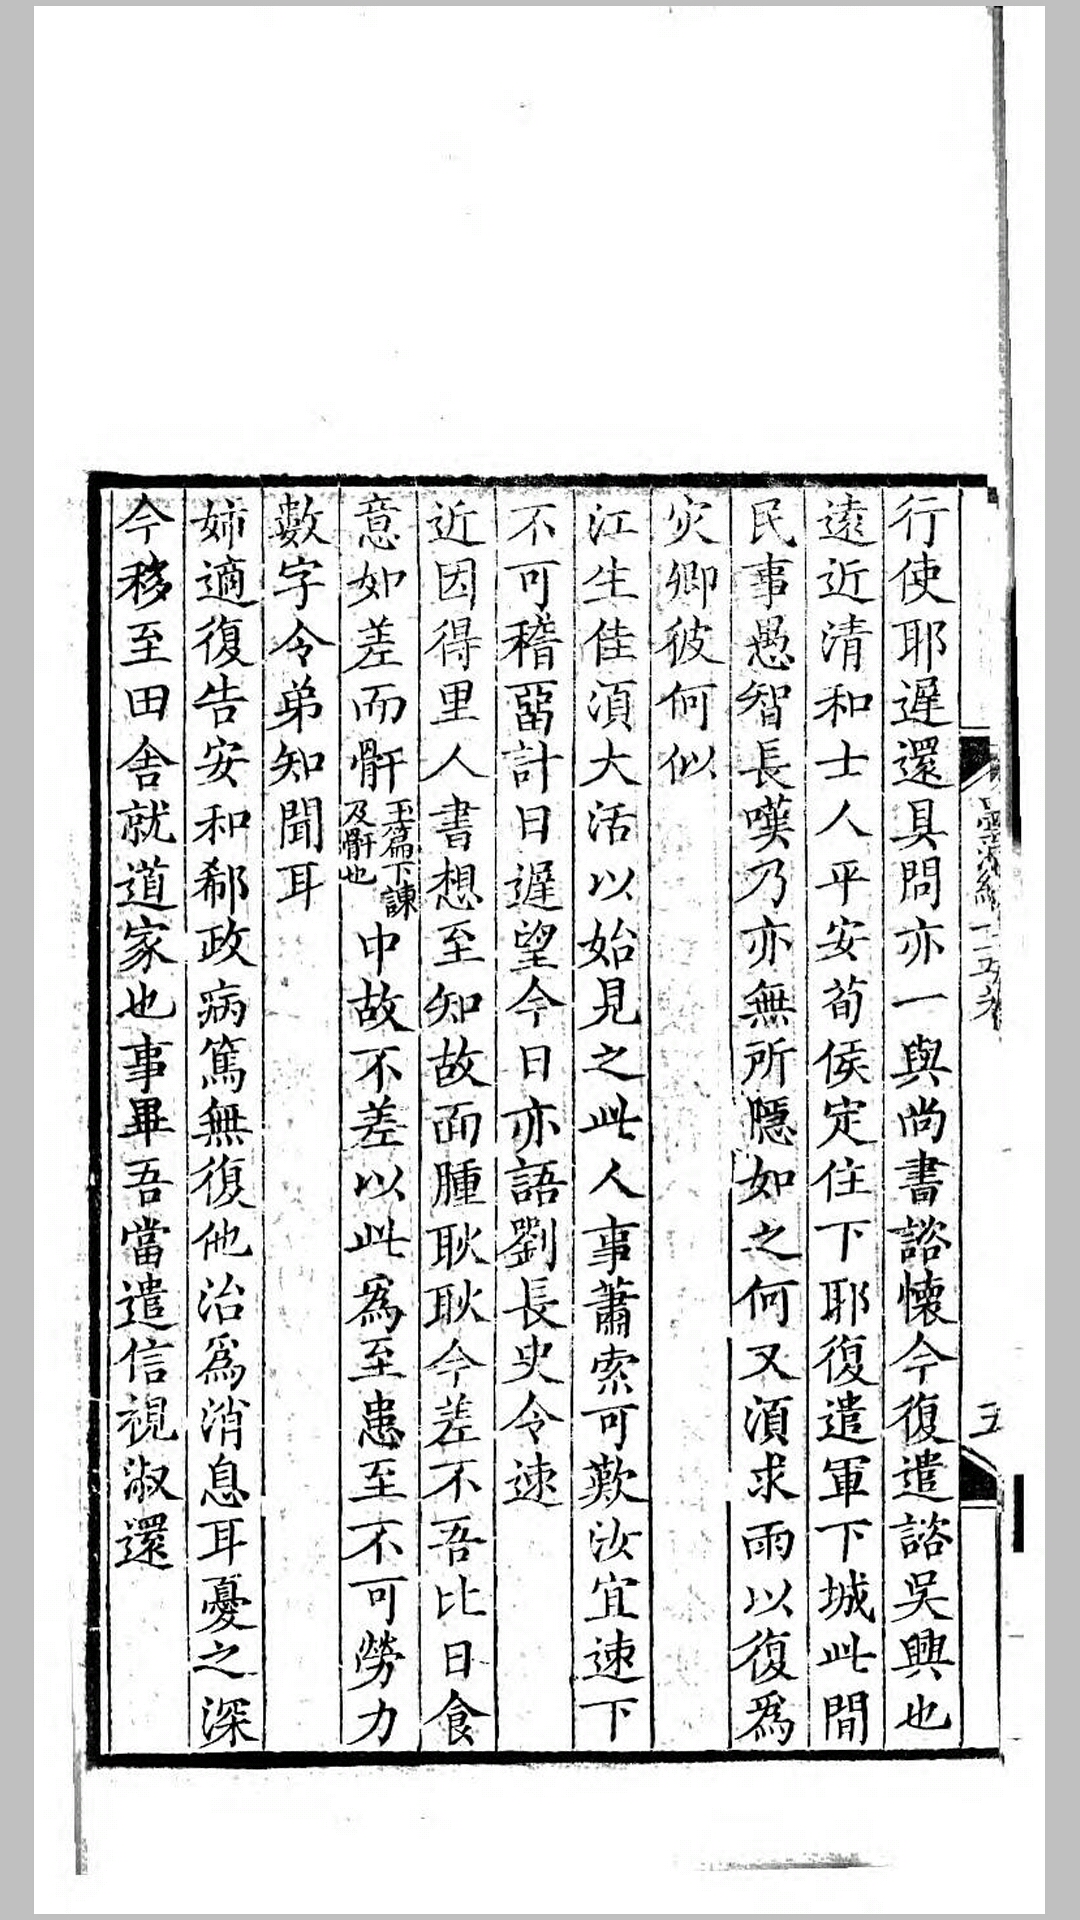 行使耶遲還具問亦一與尚書諮懷今復遣諮吳興也
遠近清和士人平安荀侯定住下耶復遣軍下城此間
民事愚智長嘆乃亦無所隱如之何又湏求雨以復爲
灾卿彼何似
江生佳湏大活以始見之此人事蕭索可歎汝宜速下
不可稽畱計日遲望今日亦語劉長史令速
近因得里人書想至知故面腫耿耿今差不吾比日食
意如差而骭玉篇下諫及骭也中故不差以此爲至患至不可勞力
數字令弟知聞耳
姊適復告安和郗政病篤無復他治爲消息耳憂之深
今移至田舍就道家也事畢吾當遣信視淑還
五